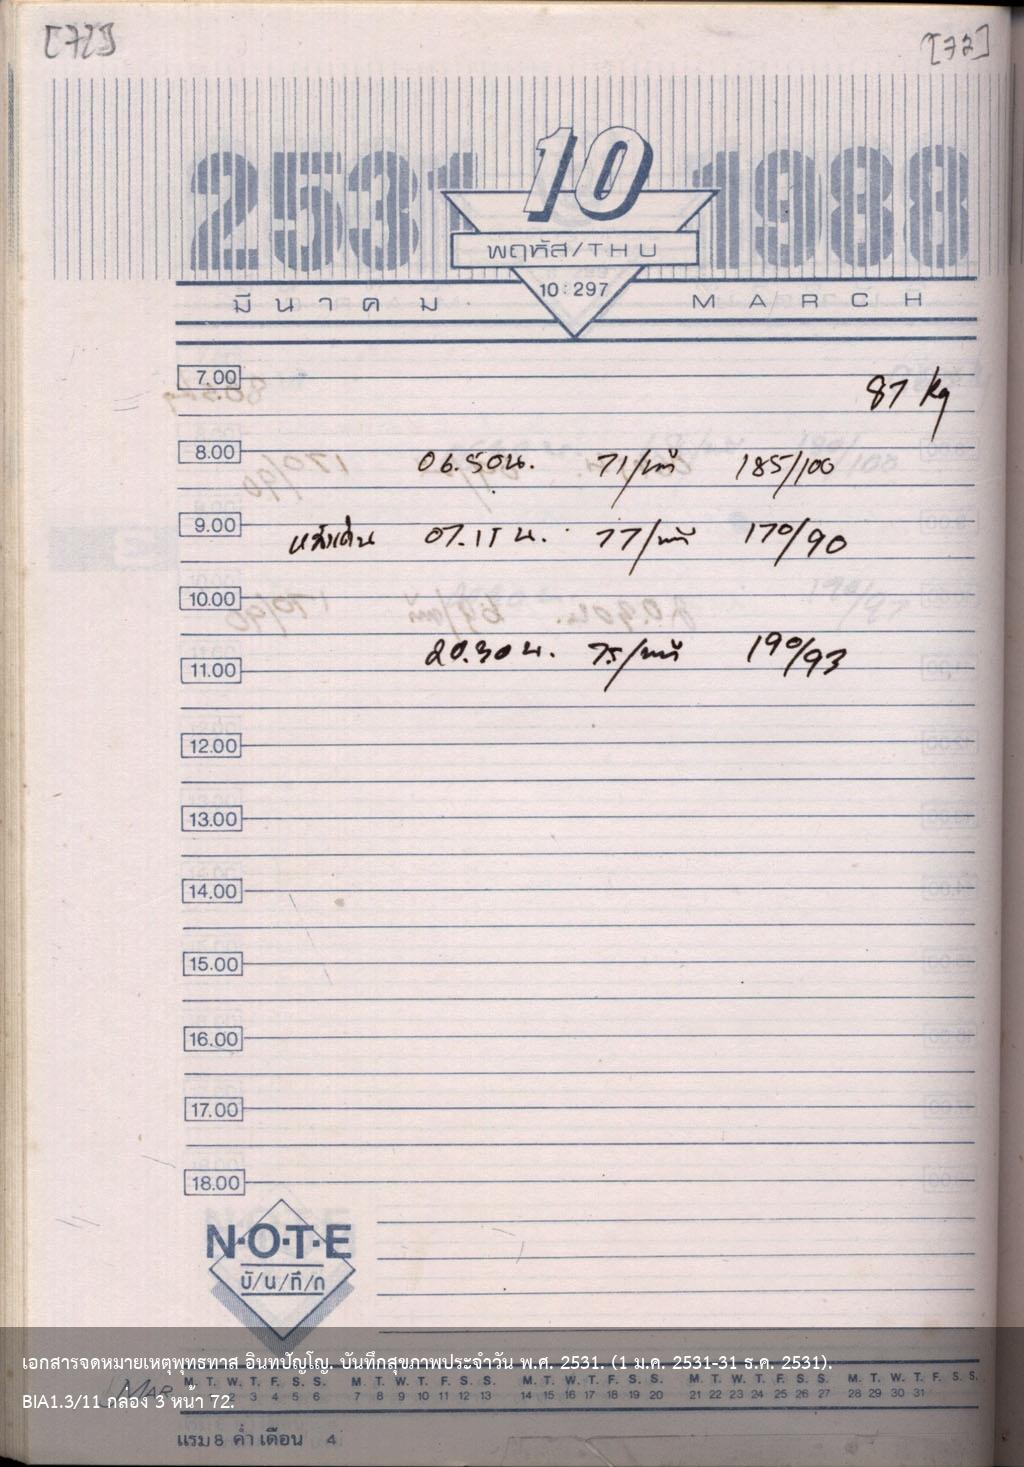 [72] [72]
2531 10 1988
พฤหัส/THU
10:297
มีนาคม MARCH
7.00
81 kg
8.00
06.50น. 71/นาที 185/100
9.00
หลังเดิน 07.15 น. 77/นาที 170/90
10.00
20.30 น. 75/นาที 190/93
11.00
12.00
13.00
14.00
15.00
16.00
17.00
18.00
N·O·T·E
บั/น/ทึ/ก
เอกสารจดหมายเหตุพุทธทาส อินทปัญโญ. บันทึกสุขภาพประจำวัน พ.ศ. 2531. (1 ม.ค. 2531-31 ธ.ค. 2531).
M. T. W. T. F. S. S. M. T. W. T. F. S. S. M. T. W. T. F. S. S. M. T. W. T. F. S. S. M. T. W. T. F. S. S.
MAR 2 3 4 5 6 7 8 9 10 11 12 13 14 15 16 17 18 19 20 21 22 23 24 25 26 27 28 29 30 31
BIA1.3/11 กล่อง 3 หน้า 72.
แรม 8 ค่ำ เดือน 4